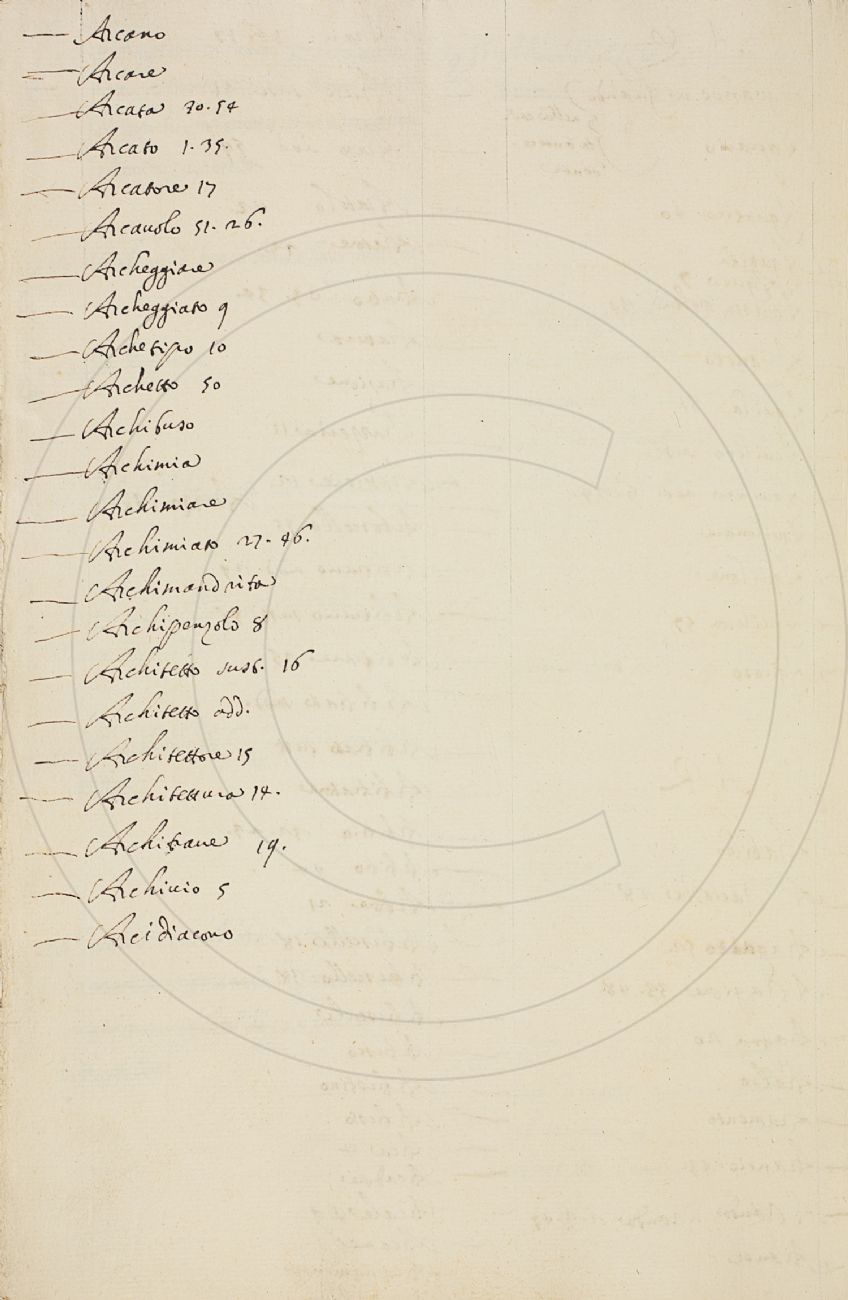 — Arcano
— Arcare
— Arcata 70. 54
— Arcato 1. 35.
— Arcatore 17
— Arcauolo 51. 26.
— Archeggiare
— Archeggiato 9
— Archetipo 10
— Archetto 50
— Archibuso
— Archimia
— Archimiare
— Archimiato 27. 46.
— Archimandrita
— Archipenzolo 8
— Architetto sust. 16
— Architetto add.
— Architettore 15
— Architettura 14.
— Architraue 19.
— Archiuio 5
— Arcidiacono